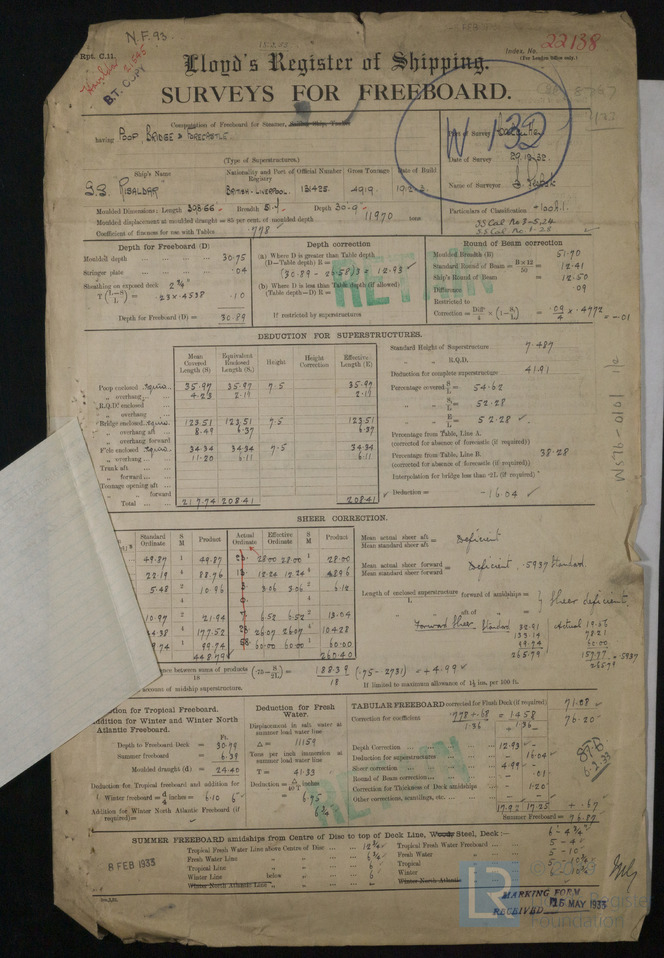 N.F. 93
Rpt. C.11.
B.T. COPY
Index. No. 22138
(For London Office only.)
Lloyd's Register of Shipping.
SURVEYS FOR FREEBOARD.
Computation of Freeboard for Steamer,
having POOP, BRIDGE & FORECASTLE
(Type of Superstructures.)
W 132
Date of Survey 29.12.32.
Name of Surveyor
Particulars of Classification +100A1.
Ship's Name
Nationality and Port of Registry
Official Number
Gross Tonnage
Date of Build
S.S. RISALDAR
BRITISH-LIVERPOOL.
131425.
Moulded Dimensions: Length 398.66 Breadth Depth 30'-9"
Moulded displacement at moulded draught = 85 per cent. of moulded depth 11970 tons
Coefficient of fineness for use with Tables .778
Depth for Freeboard (D)
Moulded depth 30.75
Stringer plate .04
Sheathing on exposed deck 2¾"
.10
Depth for Freeboard (D) = 30.89
Depth correction
(a) Where D is greater than Table depth
(D—Table depth) R =
(30.89 - 26.58)3 = 12.93
(b) Where D is less than Table depth (if allowed)
(Table depth—D) R =
If restricted by superstructures
Round of Beam correction
Moulded Breadth (B) 51.70
Standard Round of Beam = B×12/50 = 12.41
Ship's Round of Beam = 12.50
Difference .09
Restricted to
Correction = Diff/4 × (1—S₁/L) = .09/4 × .4772 = -.01
RETAIN
DEDUCTION FOR SUPERSTRUCTURES.
Mean Covered Length (S)
Equivalent Enclosed Length (S₁)
Height
Height Correction
Effective Length (E)
Poop enclosed 35.97 35.97 7.5 35.97
„ overhang 4.23 2.19 2.19
R.Q.D. enclosed
„ overhang
Bridge enclosed 123.51 123.51 7.5 123.51
„ overhang aft 8.49 6.37 6.37
„ overhang forward
F'cle enclosed 34.34 34.34 7.5 34.34
„ overhang 11.20 6.11 6.11
Trunk aft
„ forward
Tonnage opening aft
„ forward
Total 217.74 208.41 208.41
Standard Height of Superstructure 7.487
„ „ R.Q.D.
Deduction for complete superstructure 41.91
Percentage covered S/L = 54.62
„ „ S₁/L = 52.28
„ „ E/L = 52.28
Percentage from Table, Line A.
(corrected for absence of forecastle (if required))
Percentage from Table, Line B. 38.28
(corrected for absence of forecastle (if required))
Interpolation for bridge less than ·2L (if required)
Deduction = -16.04
SHEER CORRECTION.
Standard Ordinate
S M
Product
Actual Ordinate
Effective Ordinate
S M
Product
49.87 1 49.87 28.00 28.00 1 28.00
22.19 4 88.76 12.24 12.24 4 48.96
5.48 2 10.96 3.06 3.06 2 6.12
10.97 2 21.94 6.52 6.52 2 13.04
4.38 4 177.52 26.07 26.07 4 104.28
9.74 1 99.74 60.00 60.00 1 60.00
448.79 260.40
Mean actual sheer aft
Mean standard sheer aft = Deficient
Mean actual sheer forward
Mean standard sheer forward = Deficient .5937 Standard
Length of enclosed superstructure forward of amidships = } Sheer deficient,
„ aft of „ =
Forward Sheer Standard 32.91
133.14
99.74
265.79
Actual 19.56
78.21
60.00
157.77
265.79 = .5937
(·75—S/2L) = 188.39/18 (.75-.2731) = +4.99
account of midship superstructure.
If limited to maximum allowance of 1½ ins. per 100 ft.
tion for Tropical Freeboard.
ddition for Winter and Winter North Atlantic Freeboard.
Ft.
Depth to Freeboard Deck = 30.79
Summer freeboard = 6.39
Moulded draught (d) = 24.40
Deduction for Tropical freeboard and addition for
Winter freeboard = d/4 inches = 6.10 6"
Addition for Winter North Atlantic Freeboard (if required) =
Deduction for Fresh Water.
Displacement in salt water at summer load water line
Δ = 11159
Tons per inch immersion at summer load water line
T = 41.33
Deduction = Δ/40T inches
= 6.75
6¾
TABULAR FREEBOARD corrected for Flush Deck (if required) 71.08
Correction for coefficient .778+.68/1.36 = 1.458/1.36 76.20
+ -
Depth Correction 12.93 -
Deduction for superstructures - 16.04
Sheer correction 4.99 -
Round of Beam correction - .01
Correction for Thickness of Deck amidships - 1.20
Other corrections, scantlings, etc.
17.92 17.25 + .67
Summer Freeboard = 76.87
SUMMER FREEBOARD amidships from Centre of Disc to top of Deck Line, Steel, Deck:— 6-4¾"
Tropical Fresh Water Line above Centre of Disc 12¾"
Fresh Water Line „ 6¾
Tropical Line „ 6
Winter Line below „ 6
Winter North Atlantic Line „ „
Tropical Fresh Water Freeboard 5-4
Fresh Water „ 5-10
Tropical „ 5-10¾
Winter „ 6-10¾
Winter North Atlantic
8 FEB 1933
MARKING FORM
RECEIVED 15 MAY 1933
LR
Foundation